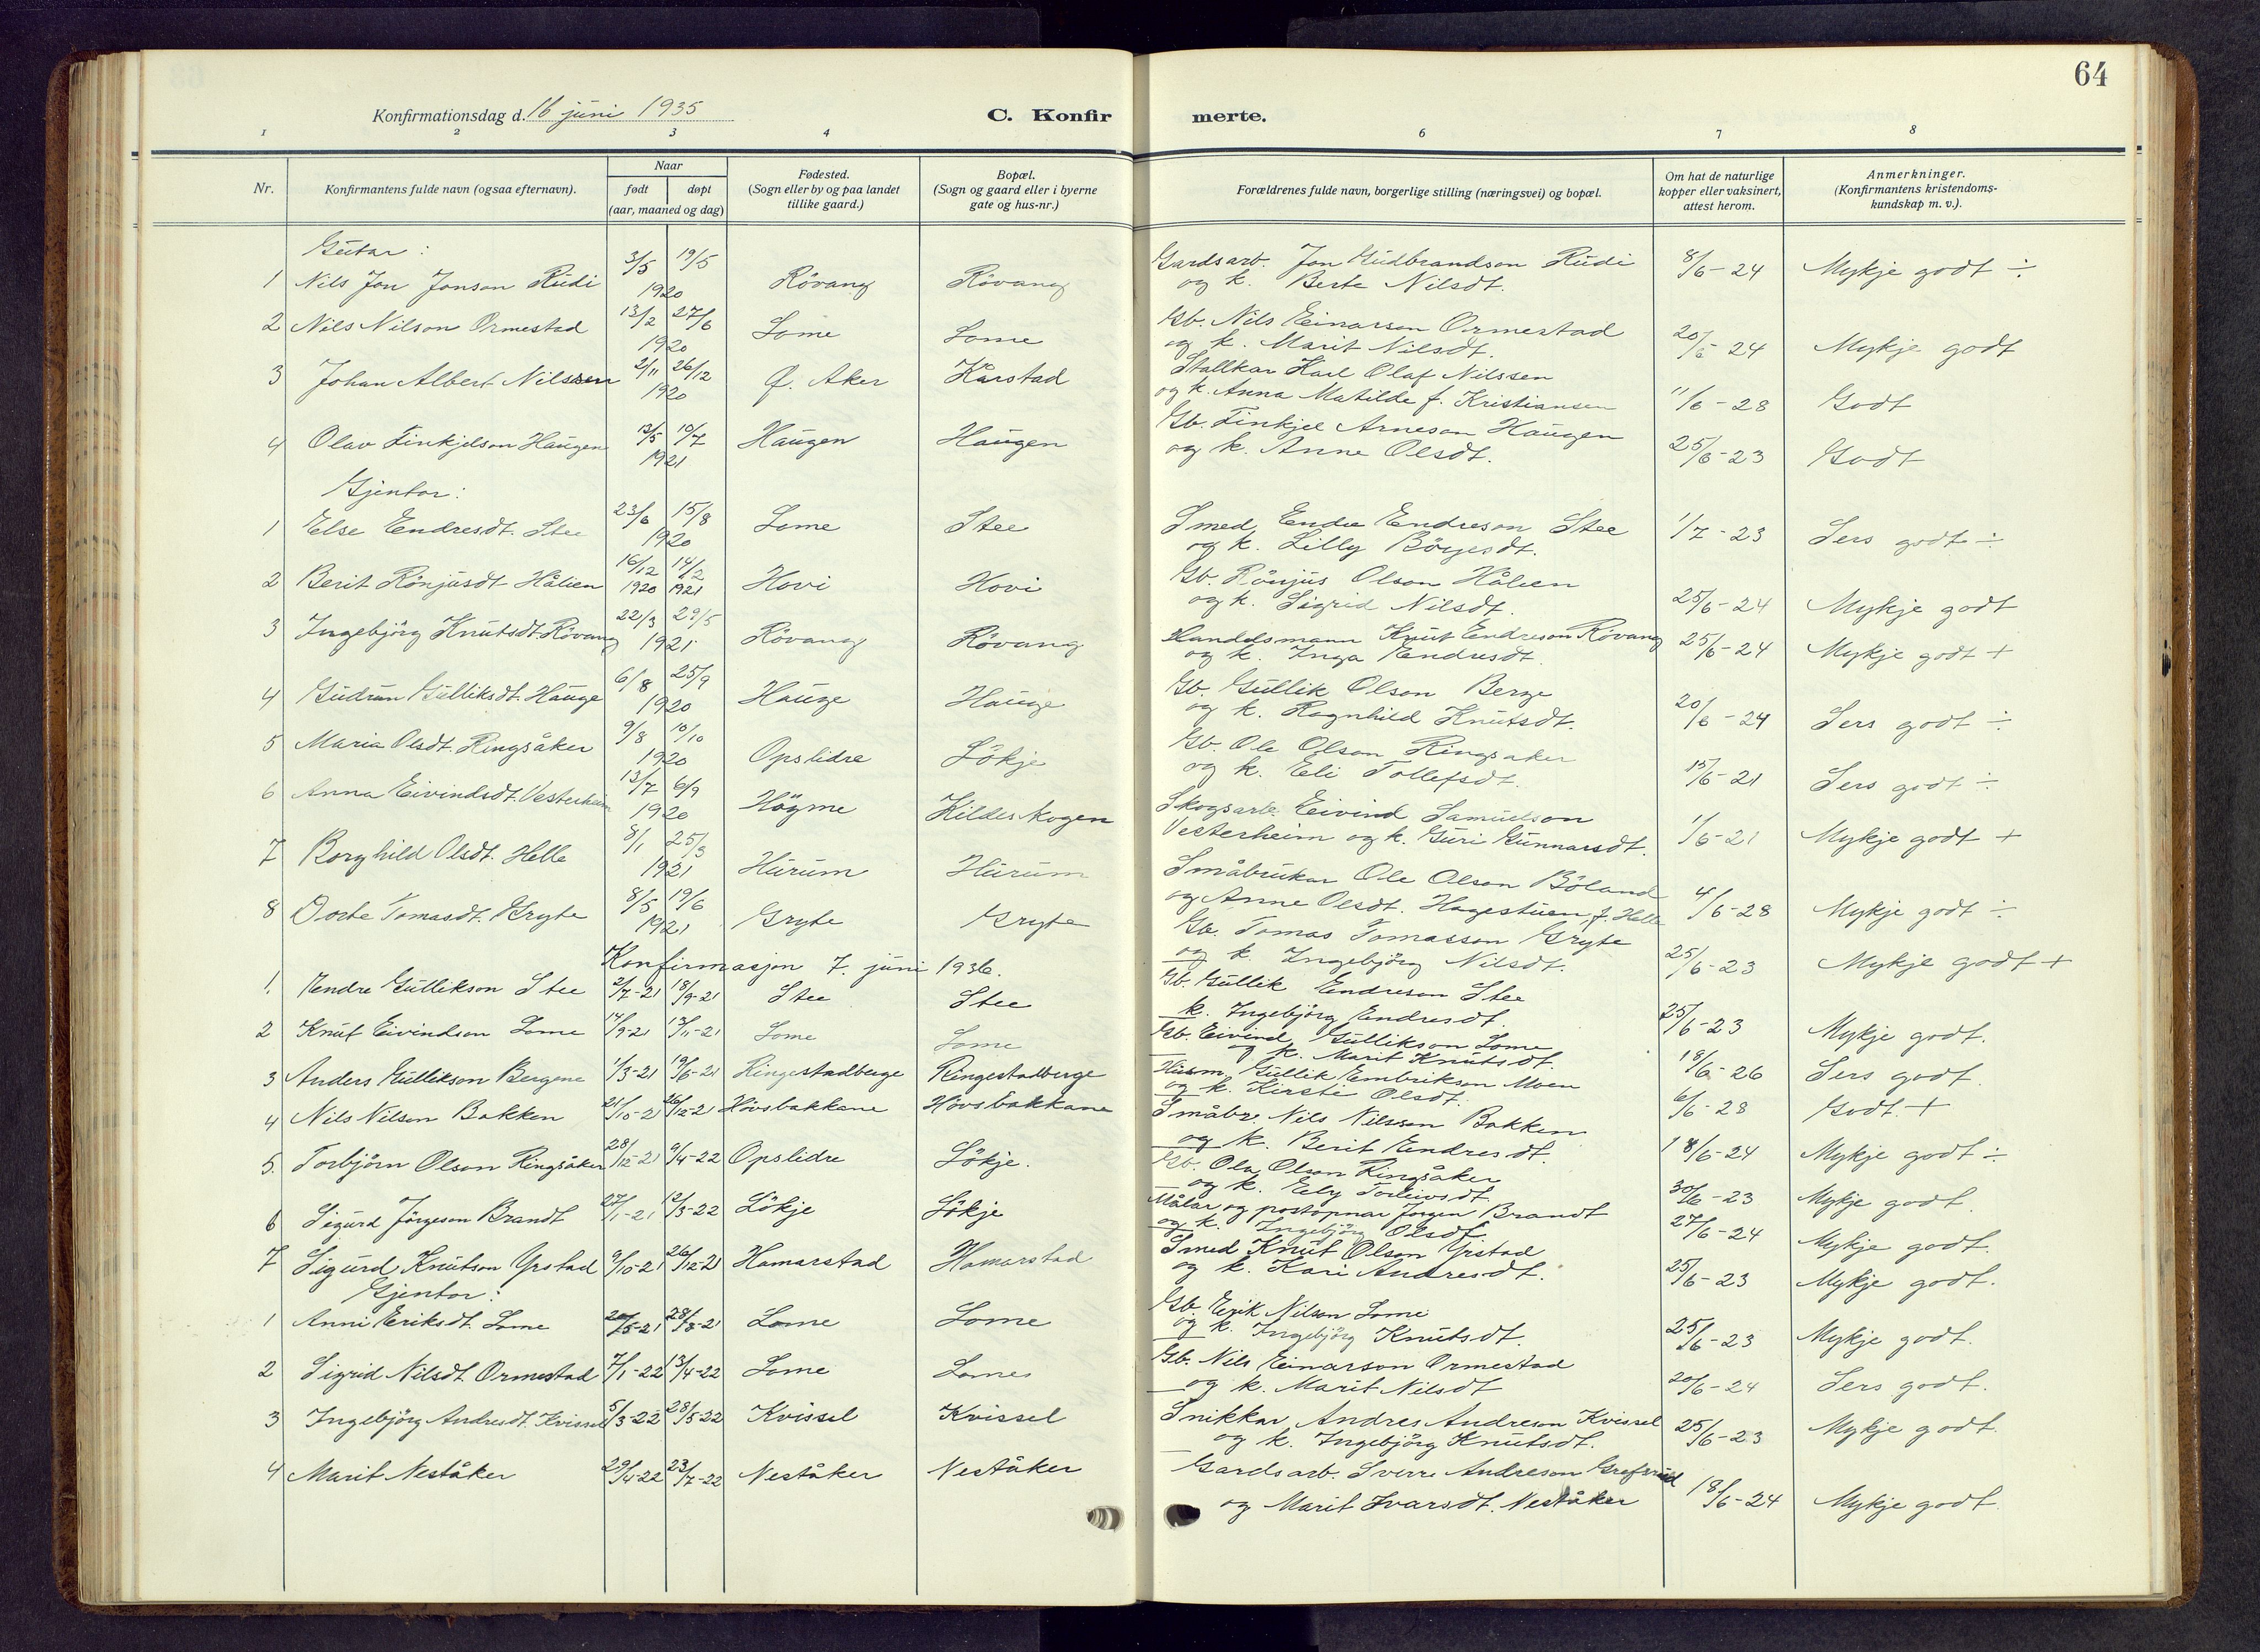 64
Konfirmationsdag d. 16 juni 1935
C. Konfirmerte.
1 2 3 4 6 7 8
Nr.
Konfirmantens fulde navn (ogsaa efternavn).
Naar
født døpt
(aar, maaned og dag)
Fødested.
(Sogn eller by og paa landet
tillike gaard.)
Bopæl.
(Sogn og gaard eller i byerne
gate og hus-nr.)
Forældrenes fulde navn, borgerlige stilling (næringsvei) og bopæl.
Om hat de naturlige
kopper eller vaksinert,
attest herom.
Anmerkninger.
(Konfirmantens kristendoms-
kundskap m. v.).
Gutar:
1 Nils Jon Jonson Rudi 3/5 19/5 1920 Rövang Rövang Gardsarb. Jon Gudbrandson Rudi
og k. Berte Nilsdt. 8/6-24 Mykje godt ÷
2 Nils Nilson Ormestad 13/2 27/6 1920 Lome Lome Gb. Nils Einarson Ormestad
og k. Marit Nilsdt. 20/6 24 Mykje godt
3 Johan Albert Nilssen 2/11 26/12 1920 Ø. Aker Karstad Stallkar Karl Olaf Nilssen
og k. Anna Matilde f. Kristiansen 11/6-28 Godt
4 Olav Finkjelson Haugen 13/5 10/7 1921 Haugen Haugen Gb. Finkjel Arneson Haugen
og k. Anne Olsdt. 25/6-23 Godt
Gjentor:
1 Else Endresdt. Stee 23/6 15/8 1920 Lome Stee Smed Endre Endreson Stee
og k. Lilly Börgesdt. 1/7-23 Sers godt ÷
2 Berit Rönjusdt Hålien 16/12 1920 14/2 1921 Hovi Hovi Gb. Rönjus Olson Hålien
og k. Sigrid Nilsdt. 25/6-24 Mykje godt
3 Ingebjörg Knutsdt Rövang 22/3 29/5 1921 Rövang Rövang Handelsmann Knut Endreson Rövang
og k. Inga Endresdt. 25/6-24 Mykje godt +
4 Gudrun Gulliksdt. Hauge 6/8 25/9 1920 Hauge Hauge Gb. Gullik Olson Berge
og k. Ragnhild Knutsdt. 20/6-24 Sers godt ÷
5 Maria Olsdt. Ringsåker 9/8 10/10 1920 Opslidre Lökje Gb. Ole Olson Ringsaker
og k. Eli Tollefsdt. 15/6-21 Sers godt ÷
6 Anna Eivindsdt. Vesterheim 13/7 6/9 1920 Högme Kildeskogen Skogsarb. Eivind Samuelson
Vesterheim og k. Guri Gunnarsdt. 1/6-21 Mykje godt +
7 Borghild Olsdt. Helle 8/1 25/3 1921 Hurum Hurum Småbrukar Ole Olson Böland
og Anne Olsdt. Hagestuen, f. Helle 4/6-28 Mykje godt ÷
8 Dorte Tomasdt. Gryte 8/5 19/6 1921 Gryte Gryte Gb. Tomas Tomasson Gryte
og k. Ingebjörg Nilsdt. 25/6-23 Mykje godt +
Konfirmasjon 7. juni 1936.
1. Endre Gullikson Stee 2/7-21 18/9-21 Stee Stee Gb. Gullik Endreson Stee
k. Ingebjörg Endresdt. 25/6-23 Mykje godt.
2 Knut Eivindson Lome 14/9-21 13/11-21 Lome Lome Gb. Eivind Gullikson Lome
og k. Marit Knutsdt. 18/6-26 Sers godt.
3 Anders Gullikson Bergene 1/3-21 19/6-21 Ringestadberge Ringestadberge Husm. Gullik Embrikson Moen
og k. Kirsti Olsdt. 6/6-28 Godt. +
4 Nils Nilson Bakken 21/10-21 26/12-21 Hövsbakkane Hövsbakkane Småbr. Nils Nilsson Bakken
og k. Berit Endresdt. 18/6-24 Mykje godt ÷
5. Torbjörn Olson Ringsåker 28/12-21 9/4-22 Opslidre Lökje. Gb. Ola Olson Ringsåker
og k. Ely Torleivsdt. 30/6-23 Mykje godt.
6 Sigurd Jörgeson Brandt 27/1-21 12/3-22 Lökje Lökje Målar og postopnar Jorgen Brandt
og k. Ingebjörg Olsdt. 27/6-24 Mykje godt.
7 Sigurd Knutson Yrstad 9/10-21 26/12-21 Hamarstad Hamarstad Smed Knut Olson Yrstad
og k. Kari Andresdt. 25/6-23 Mykje godt.
Gjentor:
1 Anni Eriksdt. Lome 20/5-21 28/8-21 Lome Lome Gb. Erik Nilson Lome
og k. Ingebjörg Knutsdt. 25/6-23 Mykje godt.
2 Sigrid Nilsdt. Ormestad 7/1-22 13/4-22 Lome Lome Gb. Nils Einarson Ormestad
og k. Marit Nilsdt 20/6-24 Sers godt.
3 Ingebjörg Andresdt. Kvissel 5/3-22 28/5-22 Kvissel Kvissel Snikkar Andres Andreson Kvissel
og k. Ingebjörg Knutsdt. 25/6-23 Mykje godt.
4 Marit Neståker 29/4-22 23/7-22 Neståker Neståker Gardsarb. Sverre Andreson Grefsrud
og Marit Ivarsdt. Neståker 18/6-24 Mykje godt.